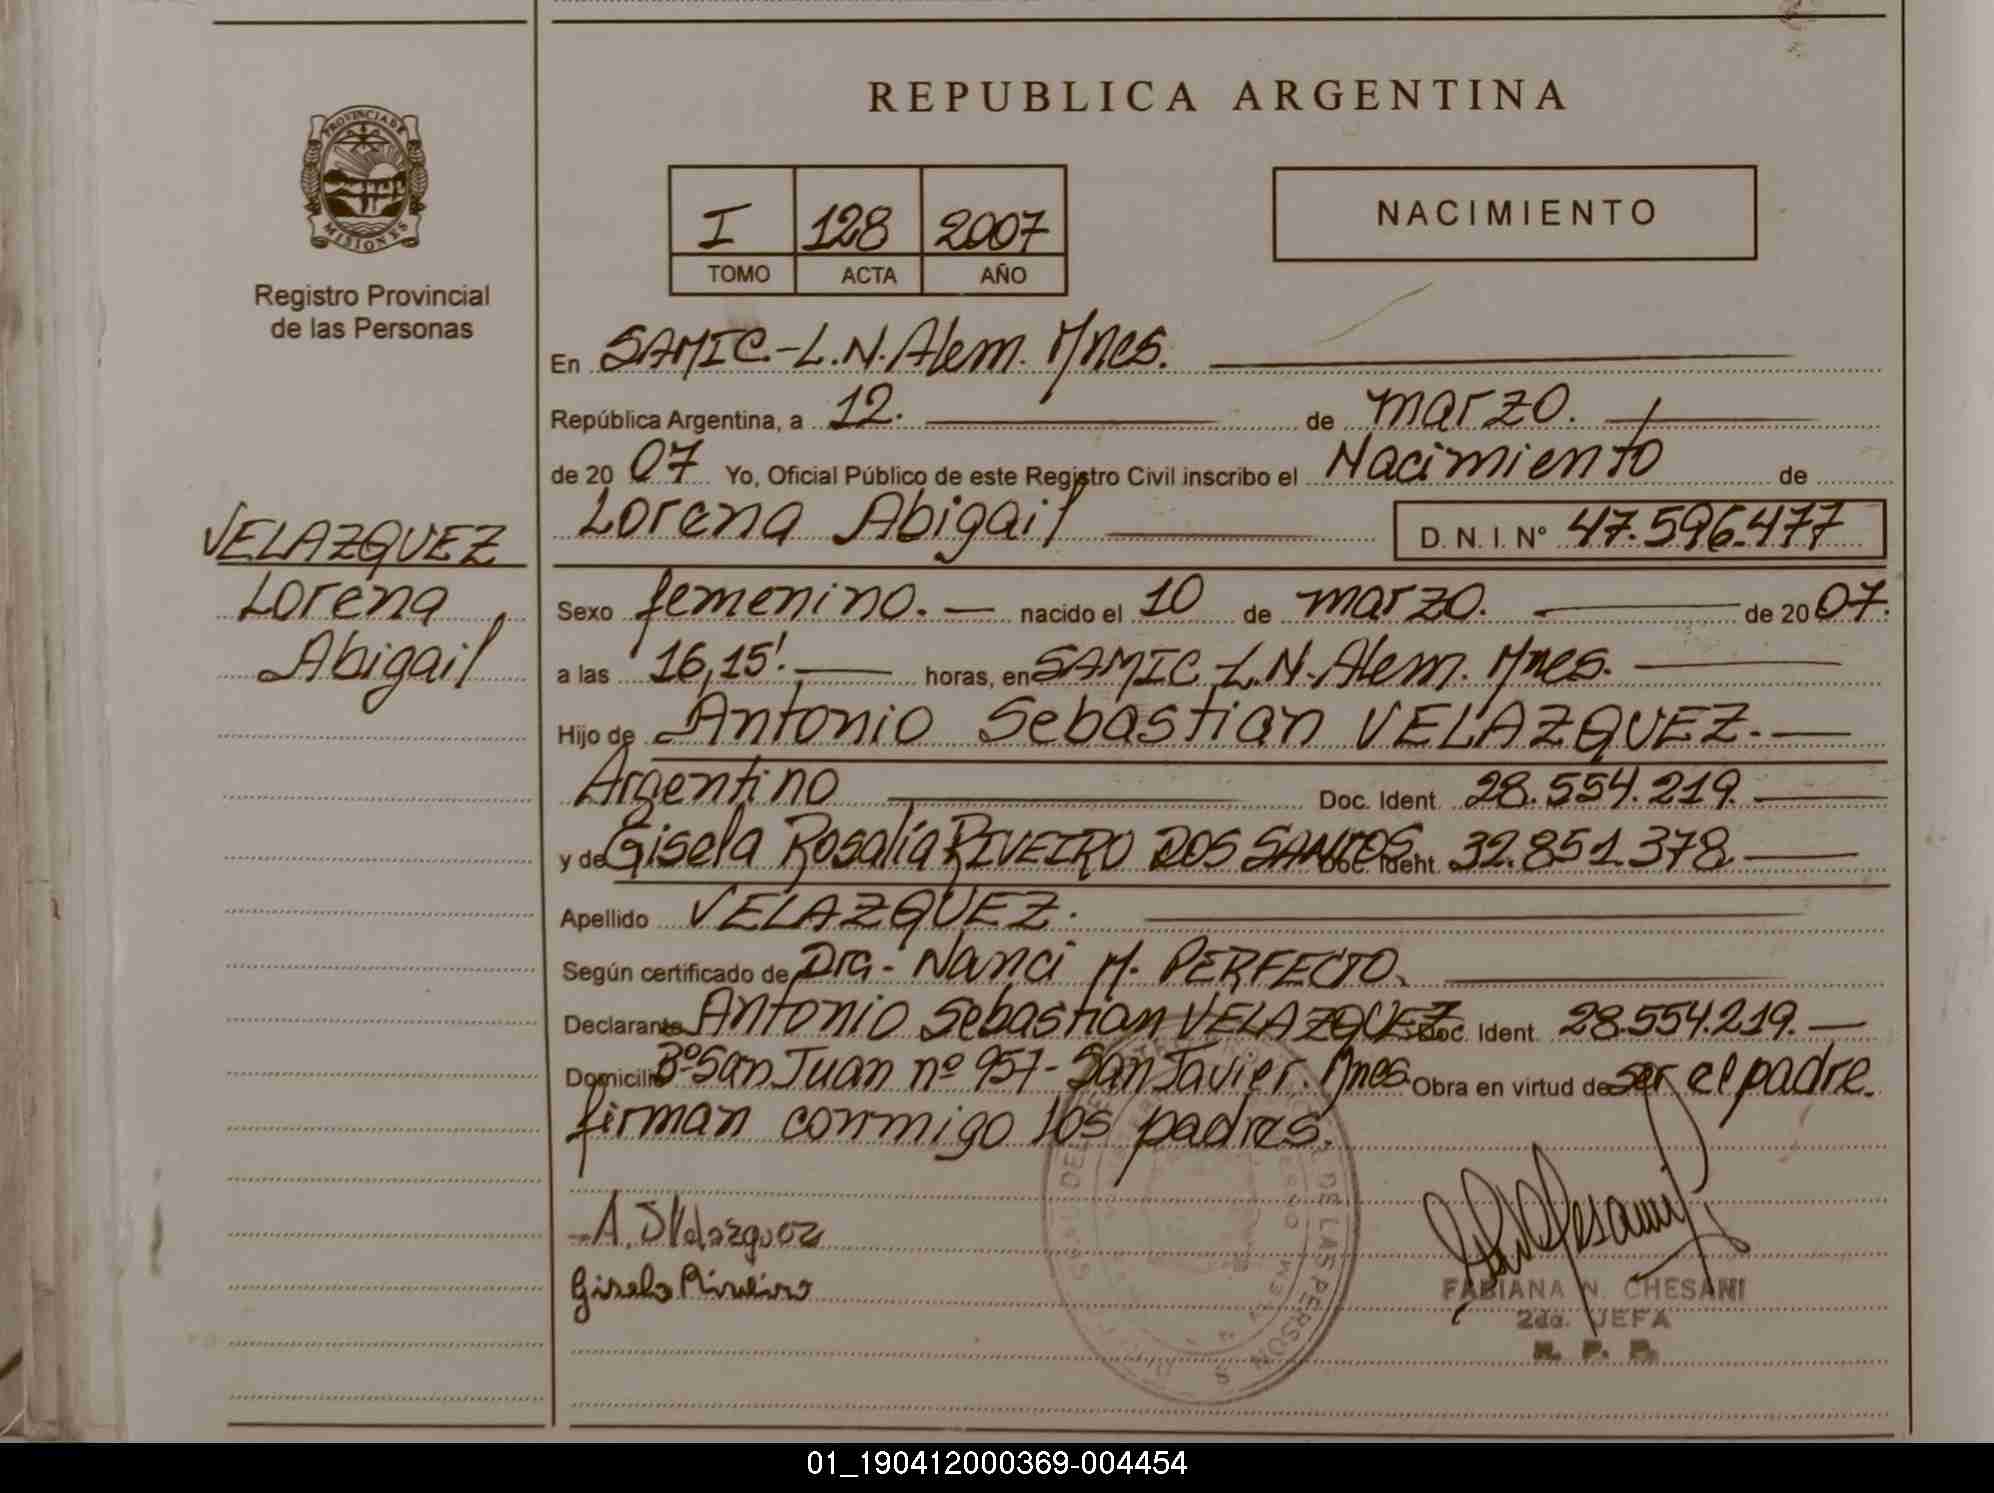 REPUBLICA ARGENTINA
PROVINCIA DE
MISIONES
Registro Provincial
de las Personas
I 128 2007
TOMO ACTA AÑO
NACIMIENTO
En SAMIC.-L.N.Alem. Mnes.
República Argentina, a 12. de marzo.
de 20 07 Yo, Oficial Público de este Registro Civil inscribo el Nacimiento de
Lorena Abigail D. N. I. Nº 47.596.477
VELAZQUEZ
Lorena
Abigail
Sexo femenino. nacido el 10 de marzo. de 20 07.
a las 16,15'. horas, en SAMIC L.N.Alem. Mnes.
Hijo de Antonio Sebastian VELAZQUEZ.
Argentino Doc. Ident. 28.554.219.
y de Gisela Rosalía RIVEIRO DOS SANTOS Doc. Ident. 32.851.378
Apellido VELAZQUEZ.
Según certificado de Dra. Nanci M. PERFECTO.
Declarante Antonio Sebastian VELAZQUEZ Doc. Ident. 28.554.219.
Domicilio Bº San Juan nº 957- San Javier. Mnes. Obra en virtud de ser el padre.
firman conmigo los padres.
A. S Velazquez
Gisela Riveiro
DE LAS PERSONAS
FABIANA N. CHESANI
2da. JEFA
R. P. P.
01_190412000369-004454